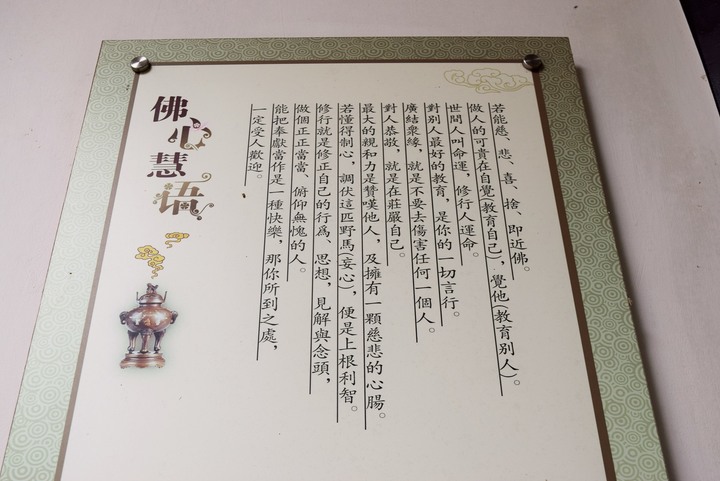 佛心慧语
若能慈、悲、喜、捨、即近佛。
做人的可貴在自覺(教育自己)、覺他(教育别人)。
世間人叫命運，修行人運命。
對别人最好的教育，是你的一切言行。
廣結衆緣，就是不要去傷害任何一個人。
對人恭敬，就是在莊嚴自己。
最大的親和力是贊嘆他人，及擁有一顆慈悲的心腸。
若懂得制心，調伏這匹野馬(妄心)，便是上根利智。
修行就是修正自己的行爲、思想，見解與念頭，
做個正正當當、俯仰無愧的人。
能把奉獻當作是一種快樂，那你所到之處，
一定受人歡迎。